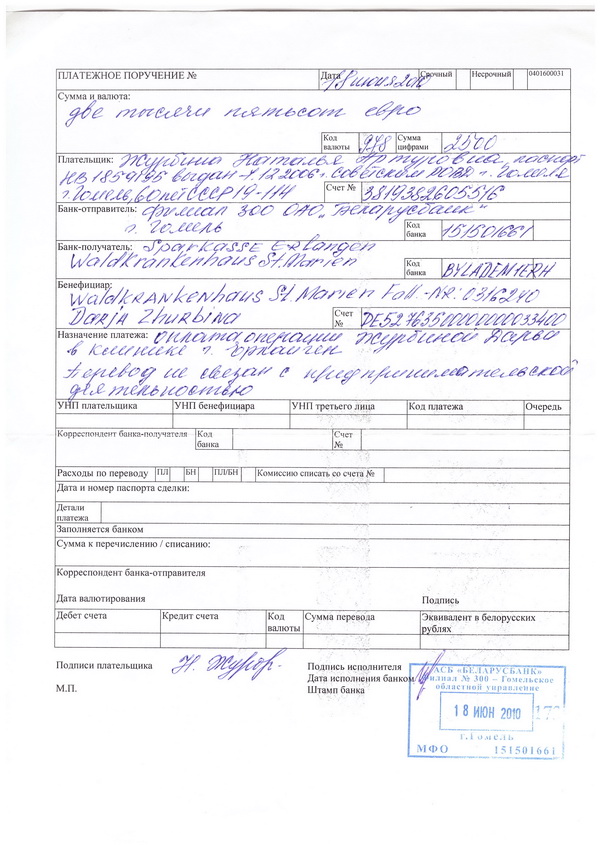 ПЛАТЕЖНОЕ ПОРУЧЕНИЕ № Дата 18 июня 2010 Срочный Несрочный 0401600031
Сумма и валюта:
две тысячи пятьсот евро
Код валюты 978 Сумма цифрами 2500
Плательщик: Журбина Наталья Артуровна, паспорт
НВ 1859195 выдан 7.12.2006 г. Советским РОВД г. Гомеля
г. Гомель, 60 лет СССР 19-114 Счет № 3819382605516
Банк-отправитель: филиал 300 ОАО „Беларусбанк"
г. Гомель Код банка 151501661
Банк-получатель: Sparkasse Erlangen
Waldkrankenhaus St. Marien Код банка BYLADEM1ERH
Бенефициар:
Waldkrankenhaus St. Marien Fall.-NR: 0316240
Darja Zhurbina Счет № DE52763500000000033400
Назначение платежа: оплата операции Журбиной Дарьи
в клинике г. Эрланген
Перевод не связан с предпринимательской
деятельностью
УНП плательщика УНП бенефициара УНП третьего лица Код платежа Очередь
Корреспондент банка-получателя Код банка Счет №
Расходы по переводу ПЛ БН ПЛ/БН Комиссию списать со счета №
Дата и номер паспорта сделки:
Детали платежа
Заполняется банком
Сумма к перечислению / списанию:
Корреспондент банка-отправителя
Дата валютирования Подпись
Дебет счета Кредит счета Код валюты Сумма перевода Эквивалент в белорусских рублях
Подписи плательщика Подпись исполнителя
Дата исполнения банком
М.П. Штамп банка
АСБ «БЕЛАРУСБАНК»
филиал № 300 – Гомельское
областной управление
18 ИЮН 2010
г.Гомель
МФО 151501661